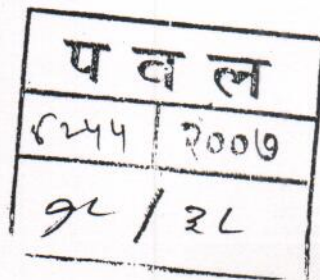 प व ल
४२५५ २००७
१८ / ३८